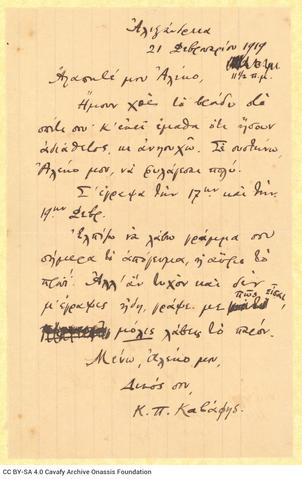 Αλεξάνδρεια
21 Φεβρουαρίου 1919
11½ π.μ.
Αγαπητέ μου Αλέκο,
Ήμουν χθες το βράδυ στο
σπίτι σου κ' εκεί έμαθα ότι ήσουν
αδιάθετος, κι ανησυχώ. Σε συστήνω
Αλέκο μου, να φυλάγεσαι πολύ.
Σ' έγραψα την 17ην και την
19ην Φεβρ.
Ελπίζω να λάβω γράμμα σου
σήμερα το απόγευμα, ή αύριο το
πρωί. Αλλ' αν τυχόν και δεν
μ' έγραψες ήδη, γράψε με πώς είσαι
μόλις λάβεις το παρόν.
Μένω, Αλέκο μου,
Δικός σου,
Κ. Π. Καβάφης.
CC BY-SA 4.0 Cavafy Archive Onassis Foundation